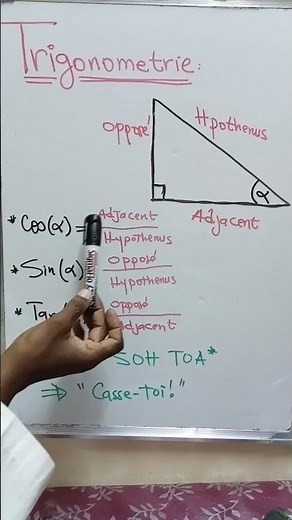 Trigonometrie:
opposé
Hpothenus
α
Adjacent
* Cos(α) = Adjacent
Hypothenus
* Sin(α) Opposé
Hypothenus
* Opposé
Adjacent
SOH TOA*
⇒ "Casse-toi!"